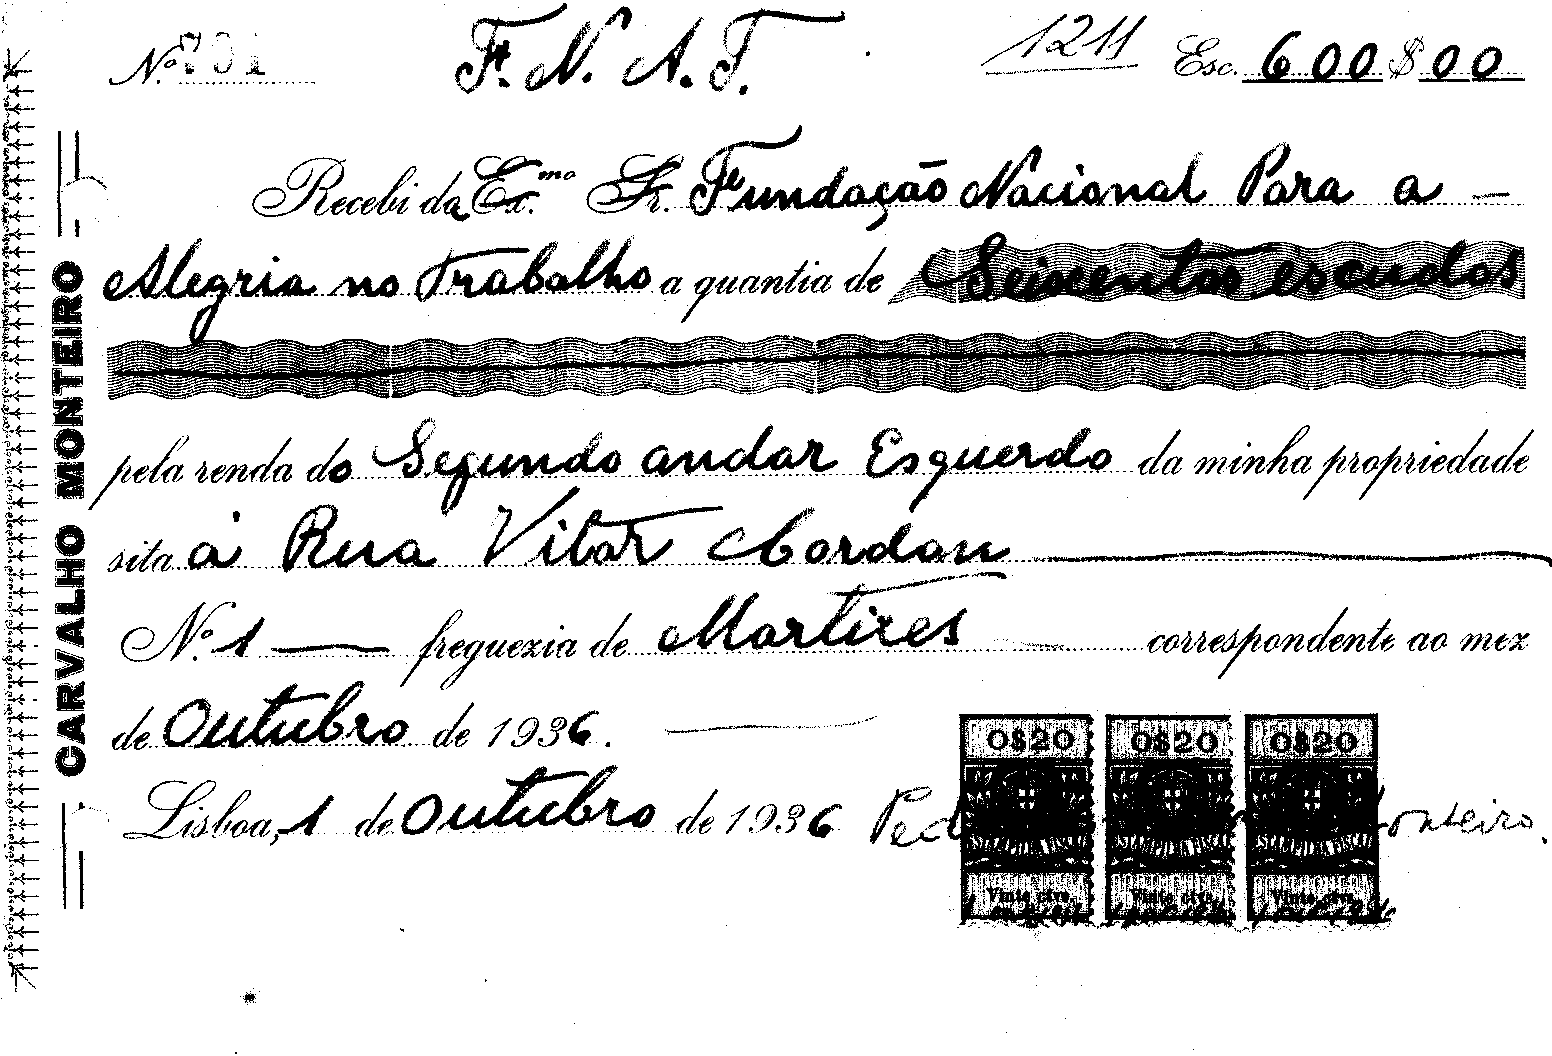 Nº 701 F. N. A. T. 1211 Esc. 600$00
Recebi da Ex.mo Sr. Fundação Nacional Para a —
Alegria no Trabalho a quantia de Seiscentos escudos
pela renda do Segundo andar Esquerdo da minha propriedade
sita á Rua Vitor Cordon
N.º 1 — freguezia de Martires — correspondente ao mez
de Outubro de 1936. —
Lisboa, 1 de Outubro de 1936
0$20 0$20 0$20
ESTAMPILHA FISCAL ESTAMPILHA FISCAL ESTAMPILHA FISCAL
Vinte ctvs. Vinte ctvs. Vinte ctvs.
CARVALHO MONTEIRO